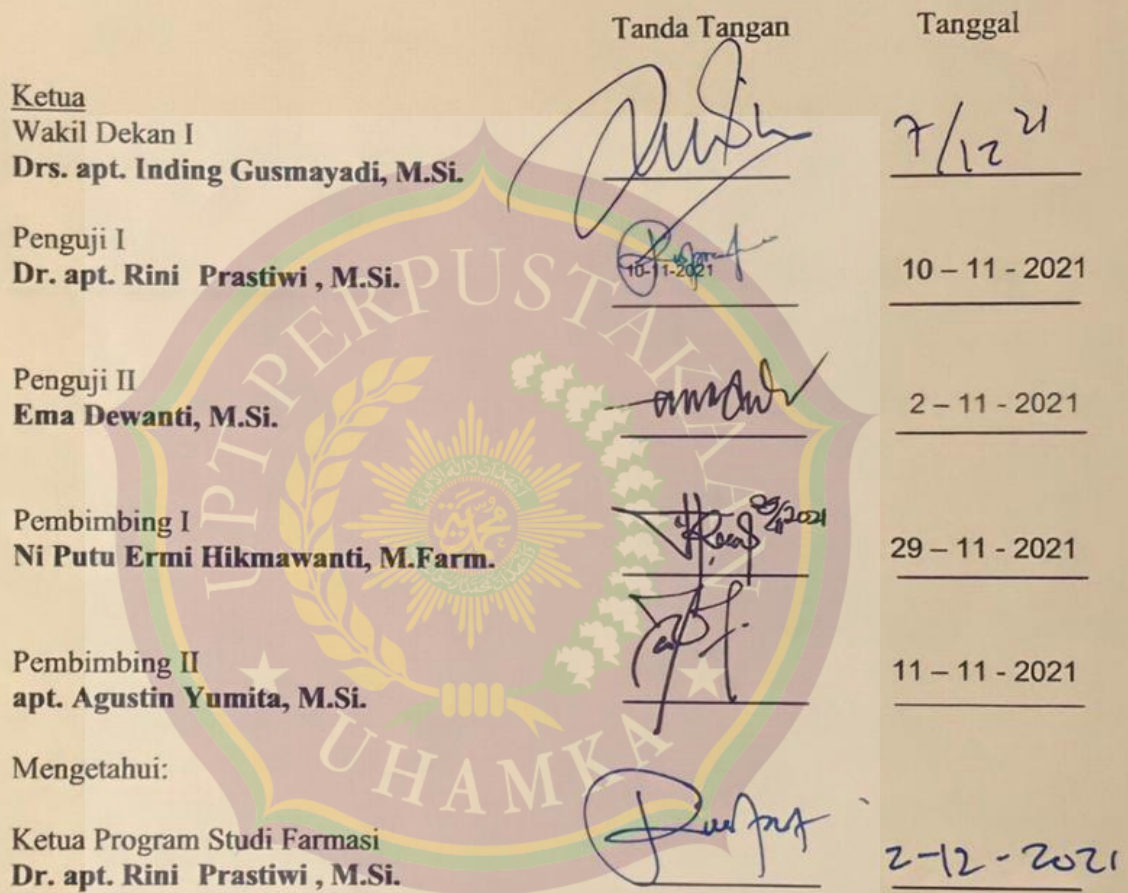 Tanda Tangan Tanggal
Ketua
Wakil Dekan I
Drs. apt. Inding Gusmayadi, M.Si. 7/12 21
Penguji I
Dr. apt. Rini Prastiwi , M.Si. 10-11-2021 10 – 11 - 2021
Penguji II
Ema Dewanti, M.Si. 2 – 11 - 2021
Pembimbing I
Ni Putu Ermi Hikmawanti, M.Farm. 29 – 11 - 2021
Pembimbing II
apt. Agustin Yumita, M.Si. 11 – 11 - 2021
Mengetahui:
Ketua Program Studi Farmasi
Dr. apt. Rini Prastiwi , M.Si. 2-12-2021
UPT PERPUSTAKAAN
UHAMKA